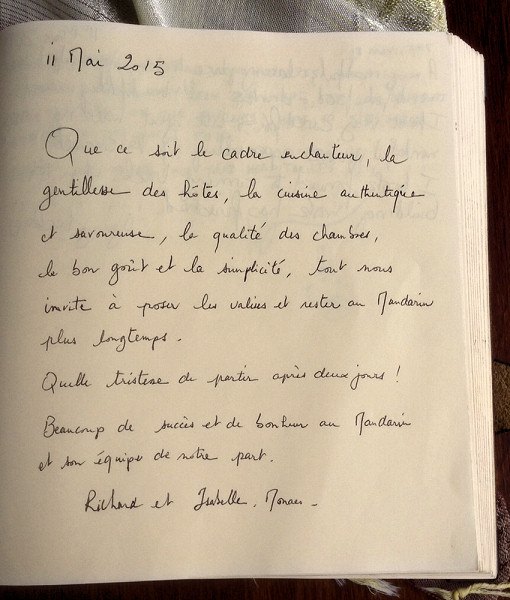 11 Mai 2015
Que ce soit le cadre enchanteur, la
gentillesse des hôtes, la cuisine authentique
et savoureuse, la qualité des chambres,
le bon goût et la simplicité, tout nous
invite à poser les valises et rester au Mandarin
plus longtemps.
Quelle tristesse de partir après deux jours !
Beaucoup de succès et de bonheur au Mandarin
et son équipe de notre part.
Richard et Isabelle. Monaco -